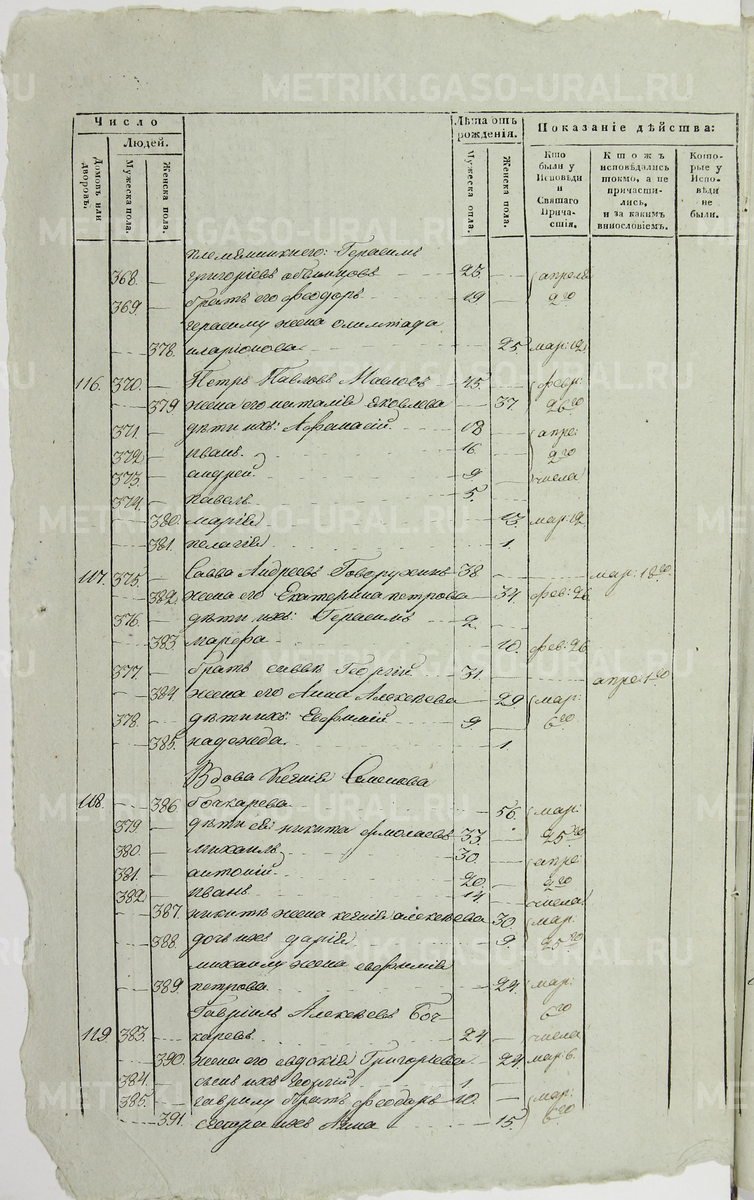 METRIKI.GASO-URAL.RU
Число
Лѣта отъ рожденія.
Показаніе дѣйства:
Людей.
Домовъ или дворовъ.
Мужеска пола.
Женска пола.
Мужеска пола.
Женска пола.
Кто были у Исповѣди и Святаго Причастія.
Кто жъ исповѣдались токмо, а не причастились, и за какимъ винословіемъ.
Которые у Исповѣди не были.
племянникиего: Герасимъ
368. григоріевъ 25. апреля
369. братъ его феодоръ 19 2го
герасиму жена олимпіада
378. иларіонова 25 мар: 12
116. 370. Петръ Павловъ 45. февр:
379 жена его наталія яковлева 37 26го
371. дѣти ихъ: Афанасій 18 апре:
372 иванъ. 16 2го
373 андрей 9 числа
374. павелъ 5.
380. марія 13. мар: 12
381. пелагія 1.
117. 375. Савва Андреевъ Говорухинъ 38. мар: 18го
382 жена его Екатерина петрова 34. фев: 26
376. дѣти ихъ: Герасимъ 2
383 марфа 10. фев: 26
377. братъ саввы Георгій 31. апре: 1го
384 жена его Анна Алексѣева 29 мар:
378. дѣти ихъ: Евфимій 9. 6го
385. надежда. 1
Вдова Ксенія Семенова
118. 386. бочкарева 56. мар:
379 дѣти ея: никита ермолаевъ 33. 25го
380. михаилъ 30. апре:
381. антоній. 20 2го
382 иванъ 14 числа
387. никитѣ жена ксенія алексѣева 30. мар:
388. дочь ихъ дарія 9. 25го
михаилу жена евфимія
389. петрова. 24. мар:
Гавріилъ Алексѣевъ Боч- 6го
119. 383. каревъ. 24 числа
390. жена его евдокія Григорьева 24 мар: 6.
384. сынъ ихъ Георгій 1
385. гаврилу братъ феодоръ 10. мар:
391. сестра ихъ Анна 15. 6го